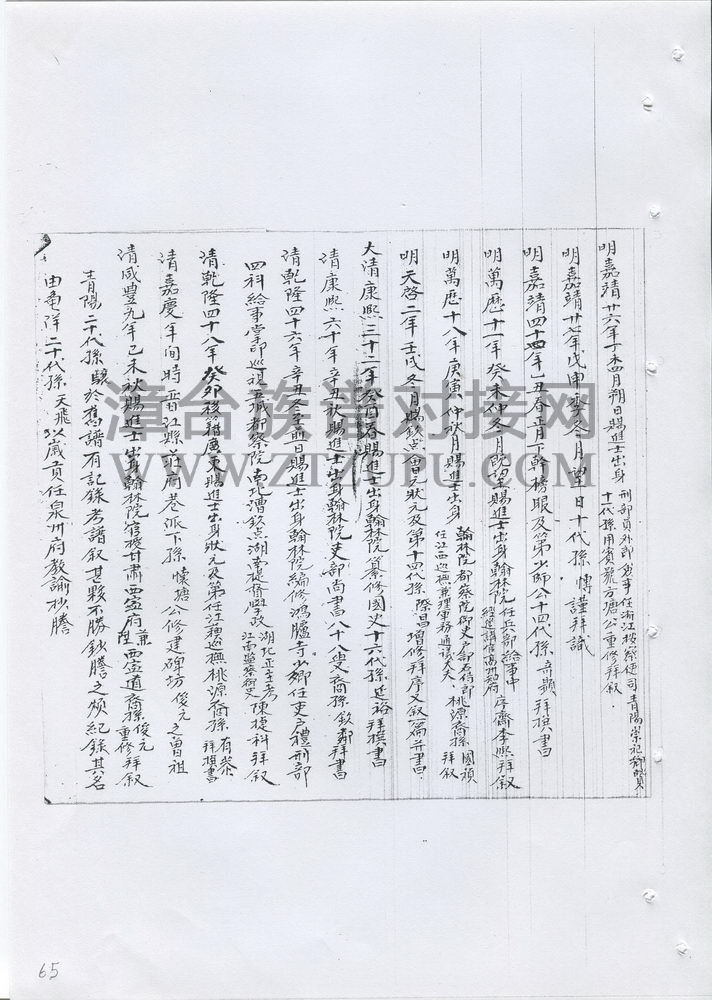 明嘉靖廿六年丁未四月朔日賜進士出身 刑部員外郎僉事任浙江按察使司青陽崇祀鄉賢
十代孫用賓號方塘公重修拜叙
明嘉靖廿七年戊申季冬月望日十代孫慱謹拜識
明嘉靖四十四年乙丑春正月下幹榜眼及第少師公十四代孫 拜撰書
明萬歷十一年癸未仲冬月既望賜進士出身翰林院 任兵部給事中
序齋李熙拜叙
明萬歷十八年庚寅仲秋月賜進士出身 翰林院都察院御史
任江西巡撫兼理軍務 桃源裔孫國禎拜叙
明天啓二年壬戌冬月賜欽点會元狀元及第十四代孫際昌增修拜序又叙一篇并書
大清康熙三十二年癸酉春賜進士出身翰林院纂修國史十六代孫延裕拜撰書
清康熙六十年辛丑秋賜進士出身翰林院吏部尚書八十八叟裔孫欽鄰拜書
清乾隆四十六年辛丑冬冬至前日賜進士出身翰林院編修鴻臚寺少卿任吏戶禮刑部
四科給事掌印巡視五城都察院南北漕欽点湖南提督學政 湖北正主考
江南監察御史 陳捷科拜叙
清乾隆四十八年癸卯移籍廣東賜進士出身狀元及第任江 巡撫桃源裔孫有 拜撰書
清嘉慶年間時晉江縣莊府巷派下孫懷塘公修建碑坊俊元之曾祖
清咸豐九年己未秋賜進士出身翰林院官授甘肅西寧府兼陞西寧道裔孫俊元重修拜叙
青陽二十代孫 於舊譜有記錄考譜叙甚夥不勝鈔謄之煩紀錄其名
由 二十代孫天飛 歲貢任泉州府教諭抄謄
清合族譜對接網
WWW.ZTZUPU.COM
65